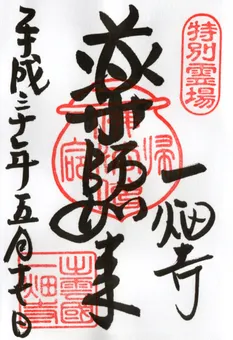 特別霊場
一畑寺
薬師如来
平成三十年五月 日
出雲國
一畑寺